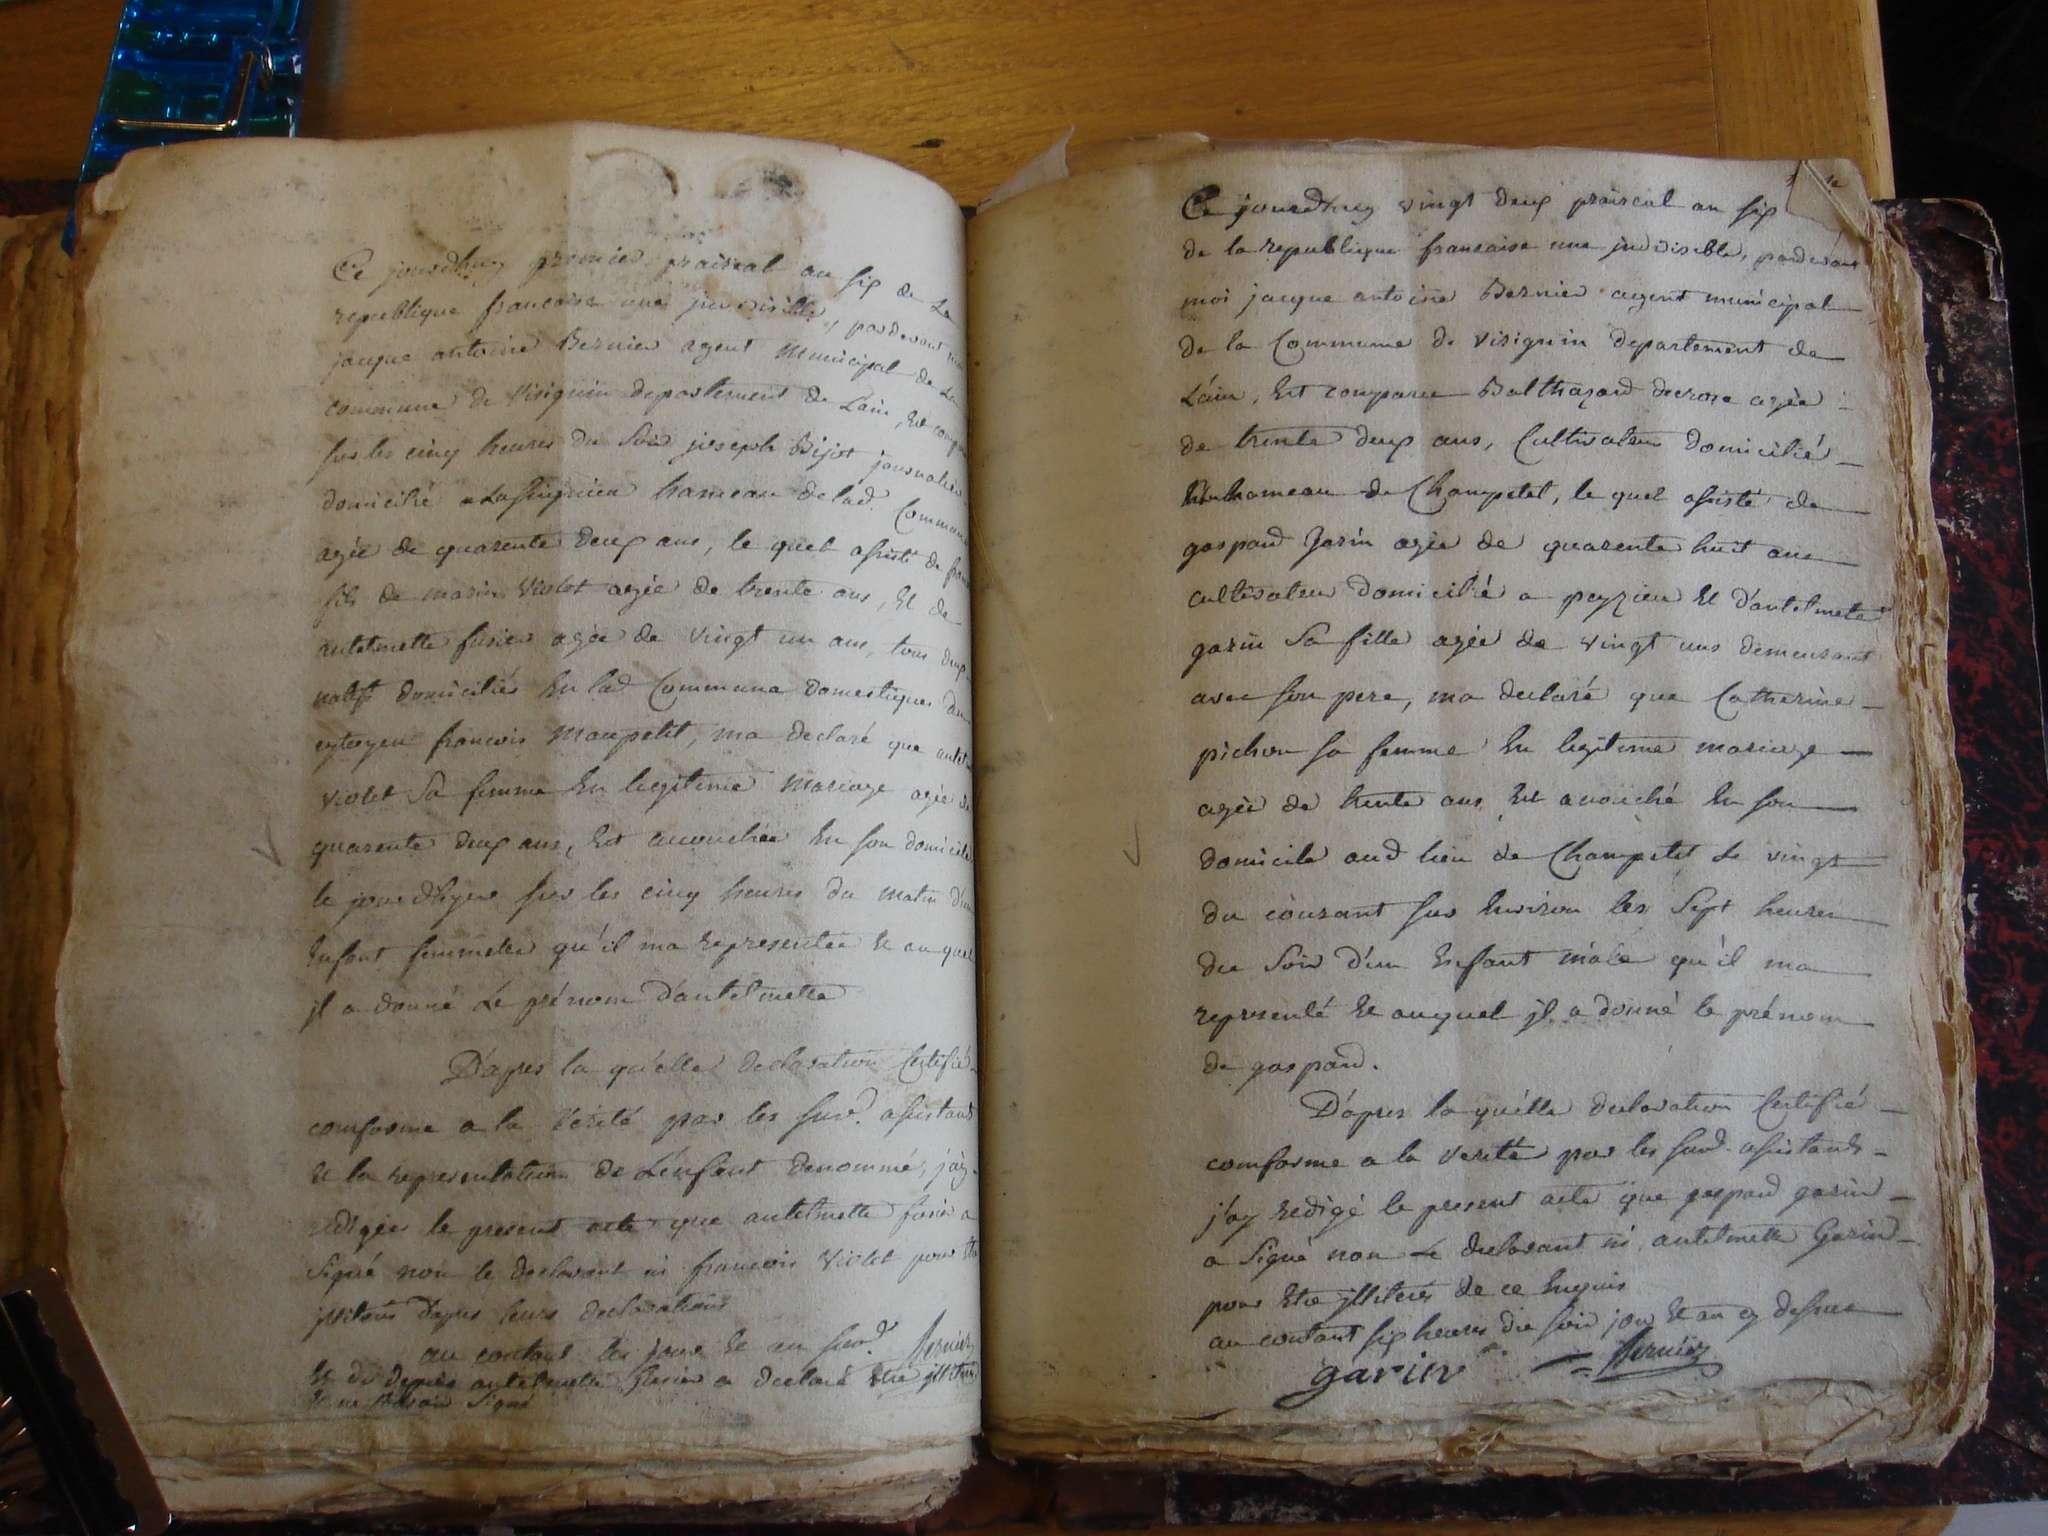 Ce jourdhuy premier prairéal an six de La
republique francaise une indivisible, pardevant moi
jacque antoine Bernier agent Municipal de La
commune de Virignin departement de Lain, Est comparu
sur les cinq heures du Soir joseph Bijot journalier
domicilié a hameau delad. Commune
agée de quarente deux ans, le quel assisté de francois
fils de marin Violet agée de trente ans, Et de
antelmette agée de vingt un ans, tous deux
natifs domiciliés En lad Commune domestiques du
cytoyen francois Maupetit, ma declaré que antel
violet Sa femme En legitime Mariage agée de
quarente deux ans, Est accouchée En son domicile
le jourdhyer sur les cinq heures du matin d'un
Enfant femmelle qu'il ma representée Et au quel
jl a donné Le prénom d'antelmette
D'apres la qu'elle declaration Certifié
comforme a la Vérité par les surd. assistants
Et la representation de L'enfant denommé, j'ay
redigée le present acte que antelmette a
Signé non le declarant ni francois Violet pour Etre
jlliterés d'apres leurs declarations
au contant les jour Et an surd. Bernier
Et de depuis antelmette a declaré Etre jlliterée
Et ne Savoir Signé
Ce jourdhuy vingt deux prairéal an six
de la republique francaise une jndivisible, pardevant
moi jacque antoine Bernier agent municipal
de la Commune de virignin departement de
L'ain, Est comparu Balthazard decroze agée
de trente deux ans, Cultivateur domicilié
hameau de Champetel, le quel assisté de
gaspard Garin agée de quarente huit ans
cultivateur domicilié a peyzieu Et d'antelmette
garin Sa fille agée de vingt uns demeurant
avec son pere, ma declaré que Catherine
pichon sa femme En legitime mariage
agée de trente ans, Est acouché En son
domicile aud lieu de Champetel le vingt
du courant sur Environ les Sept heures
du Soir d'un Enfant mâle qu'il ma
representé Et auquel jl a donné le prénom
de gaspard.
D'apres la qu'elle declaration Certifié
comforme a la verité par les surd. assistants
j'ay redigé le present acte que gaspard garin
a Signé non Le declarant ni antelmette Garin
pour Etre jlliterés de ce Enquis
au contant six heures du soir jour Et an cy dessus
garin Bernier